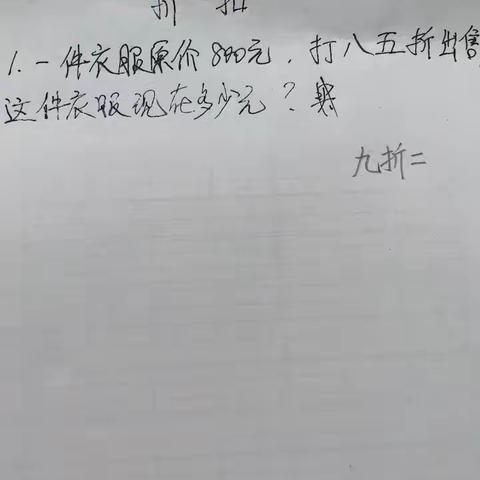 折 扣
1. 一件衣服原价800元，打八五折出售
这件衣服现在多少元？
九折=